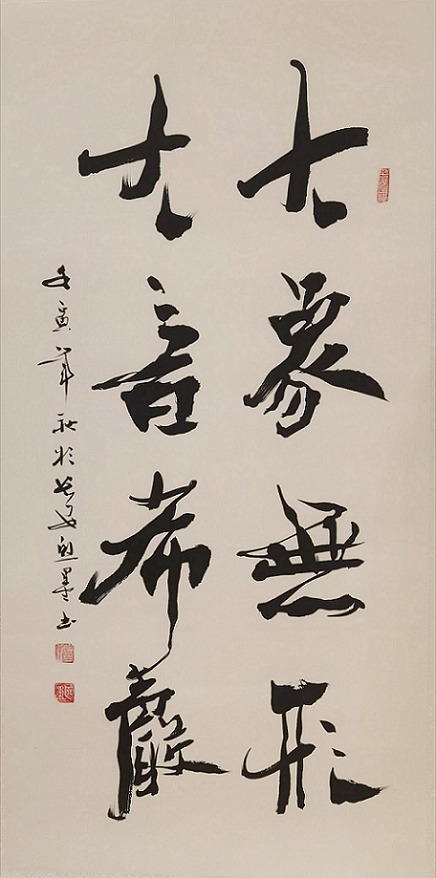 大象無形
大音希嚴
壬寅年秋於長安墨書